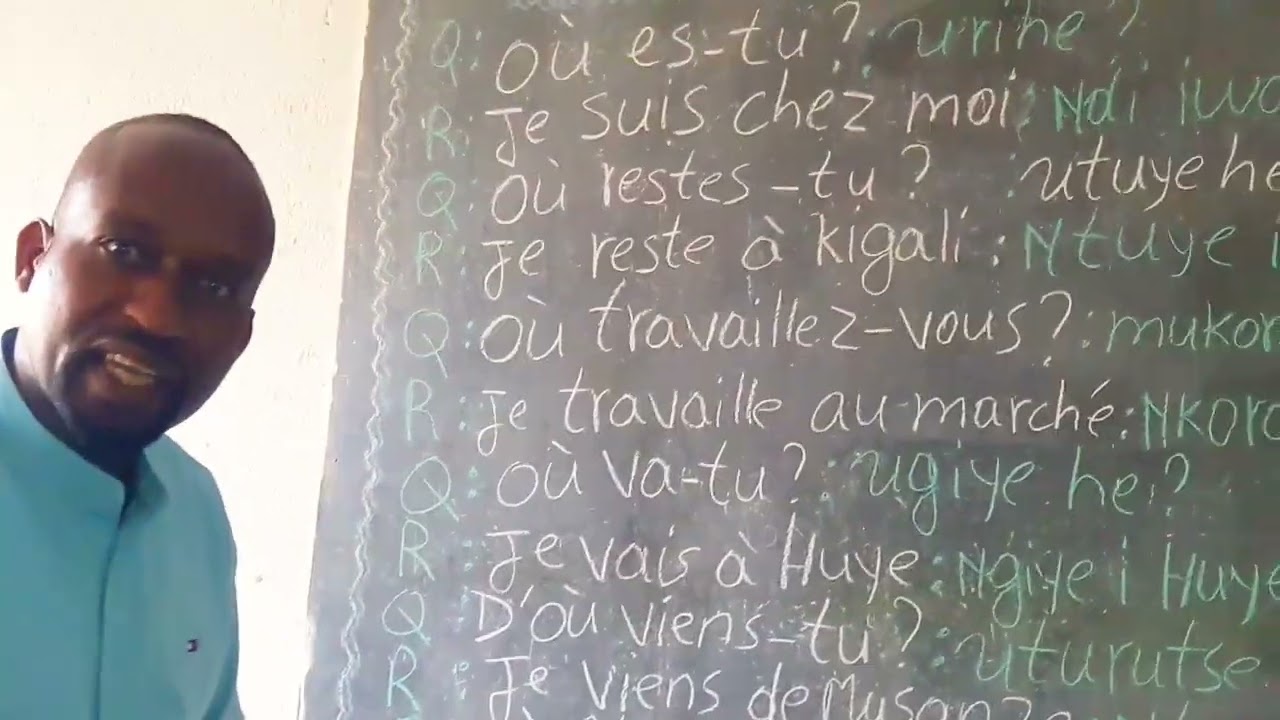 Q: Où es-tu ?: urihe ?
R: Je suis chez moi: Ndi iwa
Q: Où restes-tu ? : utuye he
R: Je reste à kigali : Ntuye i
Q: Où travaillez-vous ?: mukor
R: Je travaille au marché: Nkora
Q: Où va-tu ?: ugiye he ?
R: Je vais à Huye: Ngiye i Huye
Q: D'où viens-tu ?: uturutse
R: Je viens de Musanze